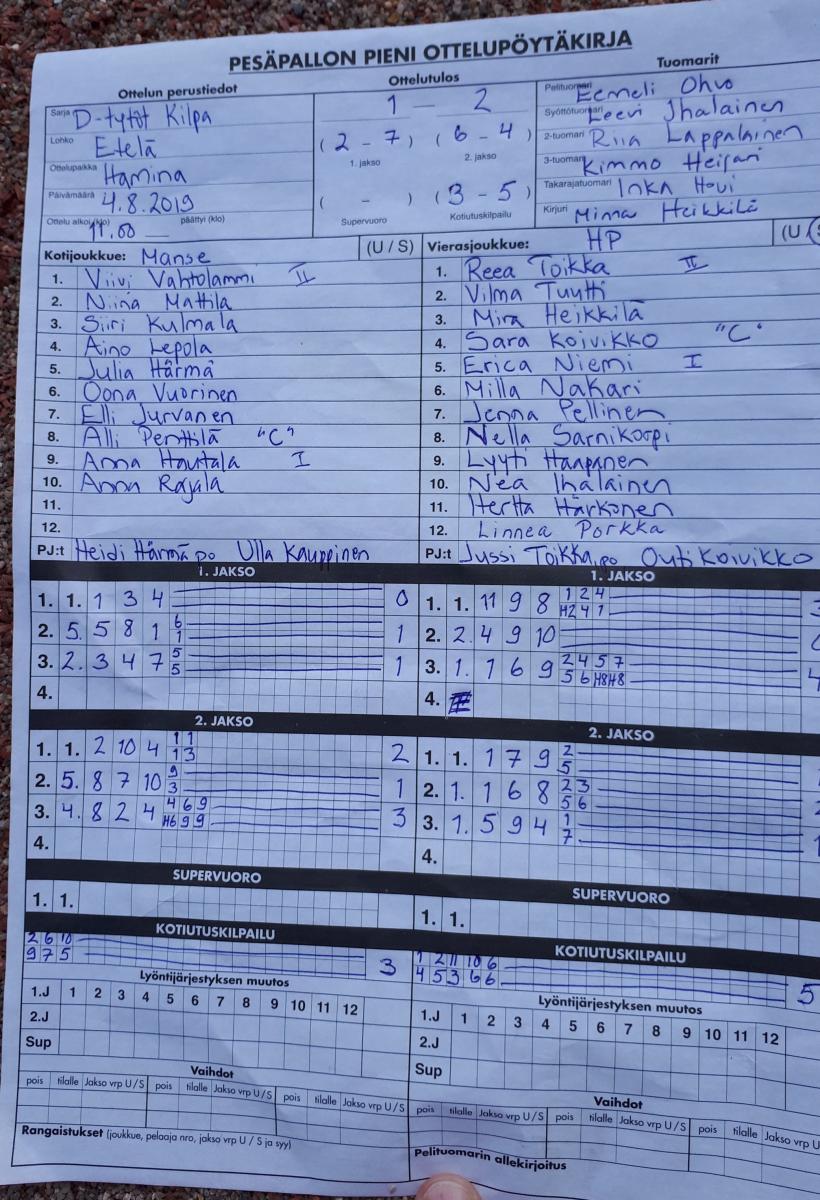 PESÄPALLON PIENI OTTELUPÖYTÄKIRJA
Ottelun perustiedot
Sarja D-tytöt Kilpa
Lohko Etelä
Ottelupaikka Hamina
Päivämäärä 4.8.2019
Ottelu alkoi (klo) 11.00 päättyi (klo)
Ottelutulos
1 - 2
(2 - 7) (6 - 4)
1. jakso 2. jakso
( - ) (3 - 5)
Supervuoro Kotiutuskilpailu
Tuomarit
Pelituomari Eemeli Ohvo
Syöttötuomari Leevi Ihalainen
2-tuomari Riia Lappalainen
3-tuomari Kimmo Heijari
Takarajatuomari Inka Hovi
Kirjuri Minna Heikkilä
Kotijoukkue: Manse (U / S)
1. Viivi Vahtolammi II
2. Niina Mattila
3. Siiri Kulmala
4. Aino Lepola
5. Julia Härmä
6. Oona Vuorinen
7. Elli Jurvanen
8. Alli Penttilä "C"
9. Anna Hautala I
10. Anna Rajala
11.
12.
PJ:t Heidi Härmä po Ulla Kauppinen
Vierasjoukkue: HP (U
1. Reea Toikka II
2. Vilma Tuutti
3. Mira Heikkilä
4. Sara Koivikko "C"
5. Erica Niemi I
6. Milla Nakari
7. Jenna Pellinen
8. Nella Sarnikorpi
9. Lyyti Haapanen
10. Nea Ihalainen
11. Hertta Härkönen
12. Linnea Porkka
PJ:t Jussi Toikka, po Outi Koivikko
1. JAKSO
1. 1. 1 3 4 0
2. 5. 5 8 1 6 1 1
3. 2. 3 4 7 5 5 1
4.
2. JAKSO
1. 1. 2 10 4 1 1 1 3 2
2. 5. 8 7 10 9 3 1
3. 4. 8 2 4 4 6 9 H6 9 9 3
4.
SUPERVUORO
1. 1.
KOTIUTUSKILPAILU
2 6 10
9 7 5 3
Lyöntijärjestyksen muutos
1.J 1 2 3 4 5 6 7 8 9 10 11 12
2.J
Sup
Vaihdot
pois tilalle Jakso vrp U / S pois tilalle Jakso vrp U / S pois tilalle Jakso vrp U / S
Rangaistukset (joukkue, pelaaja nro, jakso vrp U / S ja syy)
1. JAKSO
1. 1. 11 9 8 1 2 4 H2 4 1 3
2. 2. 4 9 10
3. 1. 1 6 9 2 4 5 7 5 6 H8 H8 4
4.
2. JAKSO
1. 1. 1 7 9 2 5
2. 1. 1 6 8 2 3 5 6
3. 1. 5 9 4 1 7
4.
SUPERVUORO
1. 1.
KOTIUTUSKILPAILU
1 2 11 10 6
4 5 3 6 6 5
Lyöntijärjestyksen muutos
1.J 1 2 3 4 5 6 7 8 9 10 11 12
2.J
Sup
Vaihdot
pois tilalle Jakso vrp U / S pois tilalle Jakso vrp U / S pois tilalle Jakso vrp U
Pelituomarin allekirjoitus